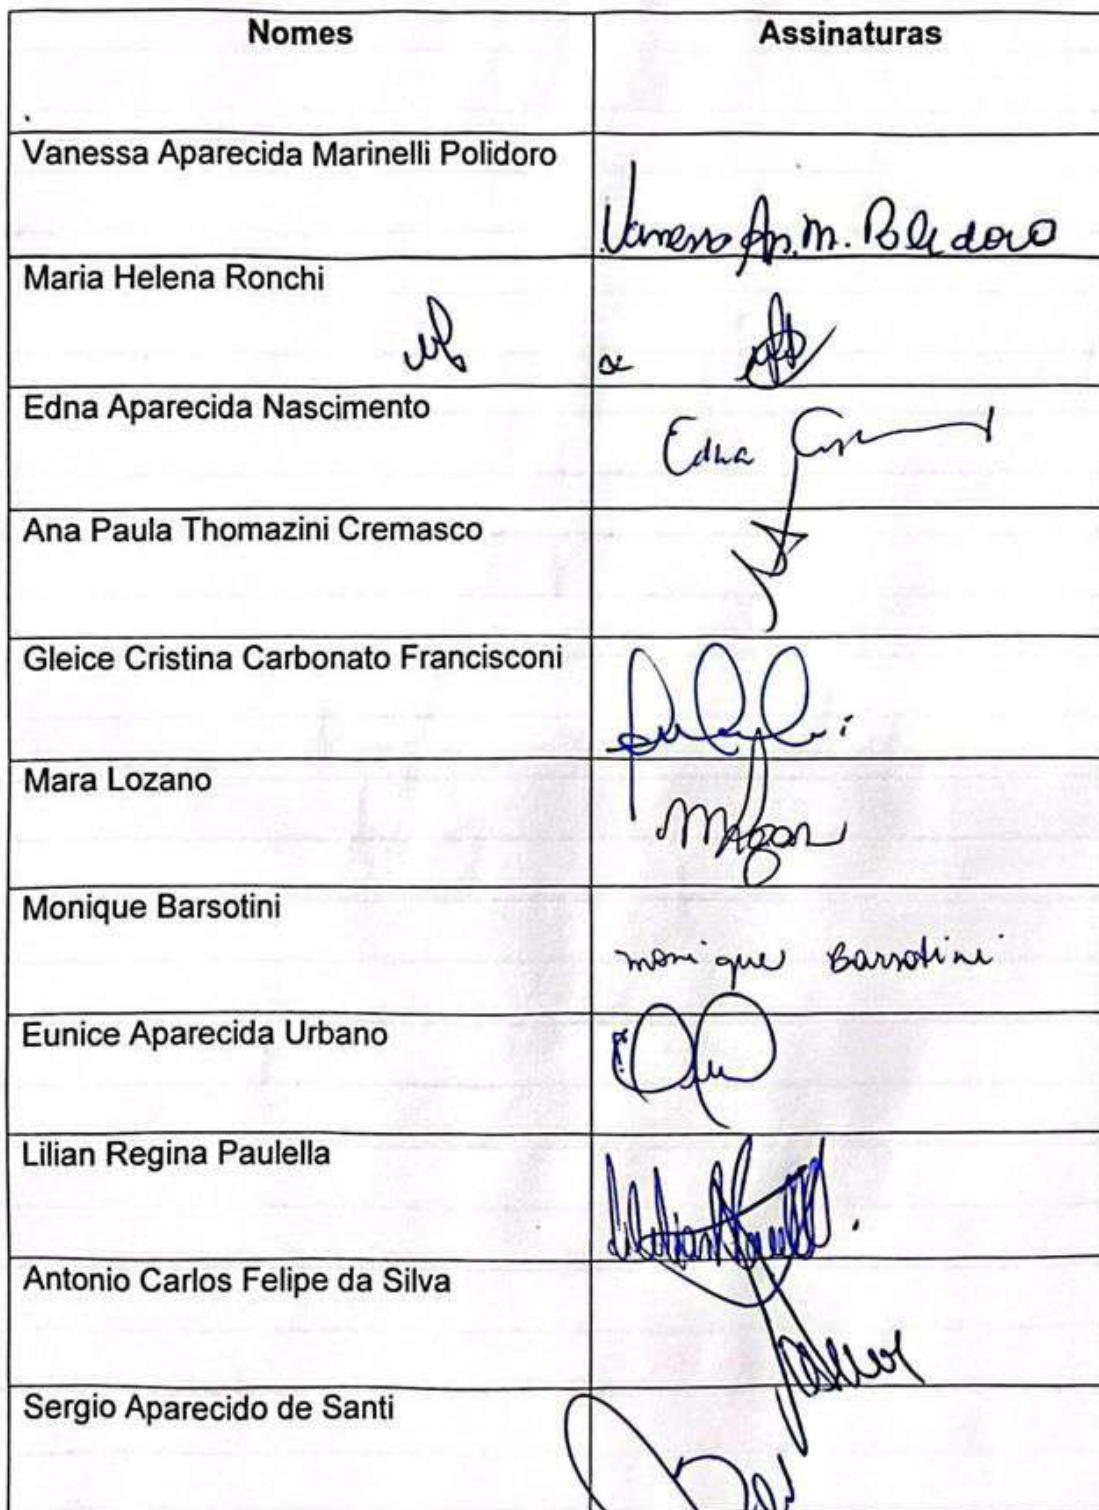 Nomes Assinaturas
Vanessa Aparecida Marinelli Polidoro
Vanessa Ap. M. Polidoro
Maria Helena Ronchi
Edna Aparecida Nascimento
Edna
Ana Paula Thomazini Cremasco
Gleice Cristina Carbonato Francisconi
Mara Lozano
Monique Barsotini
monique Barsotini
Eunice Aparecida Urbano
Lilian Regina Paulella
Antonio Carlos Felipe da Silva
Sergio Aparecido de Santi